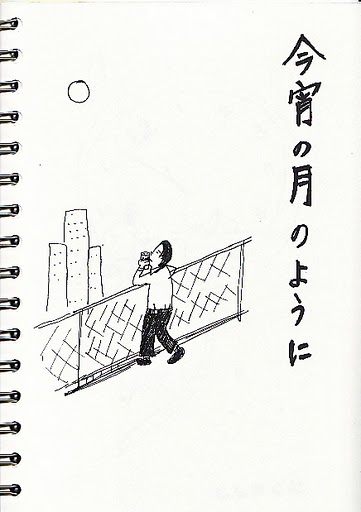 今宵の月のように